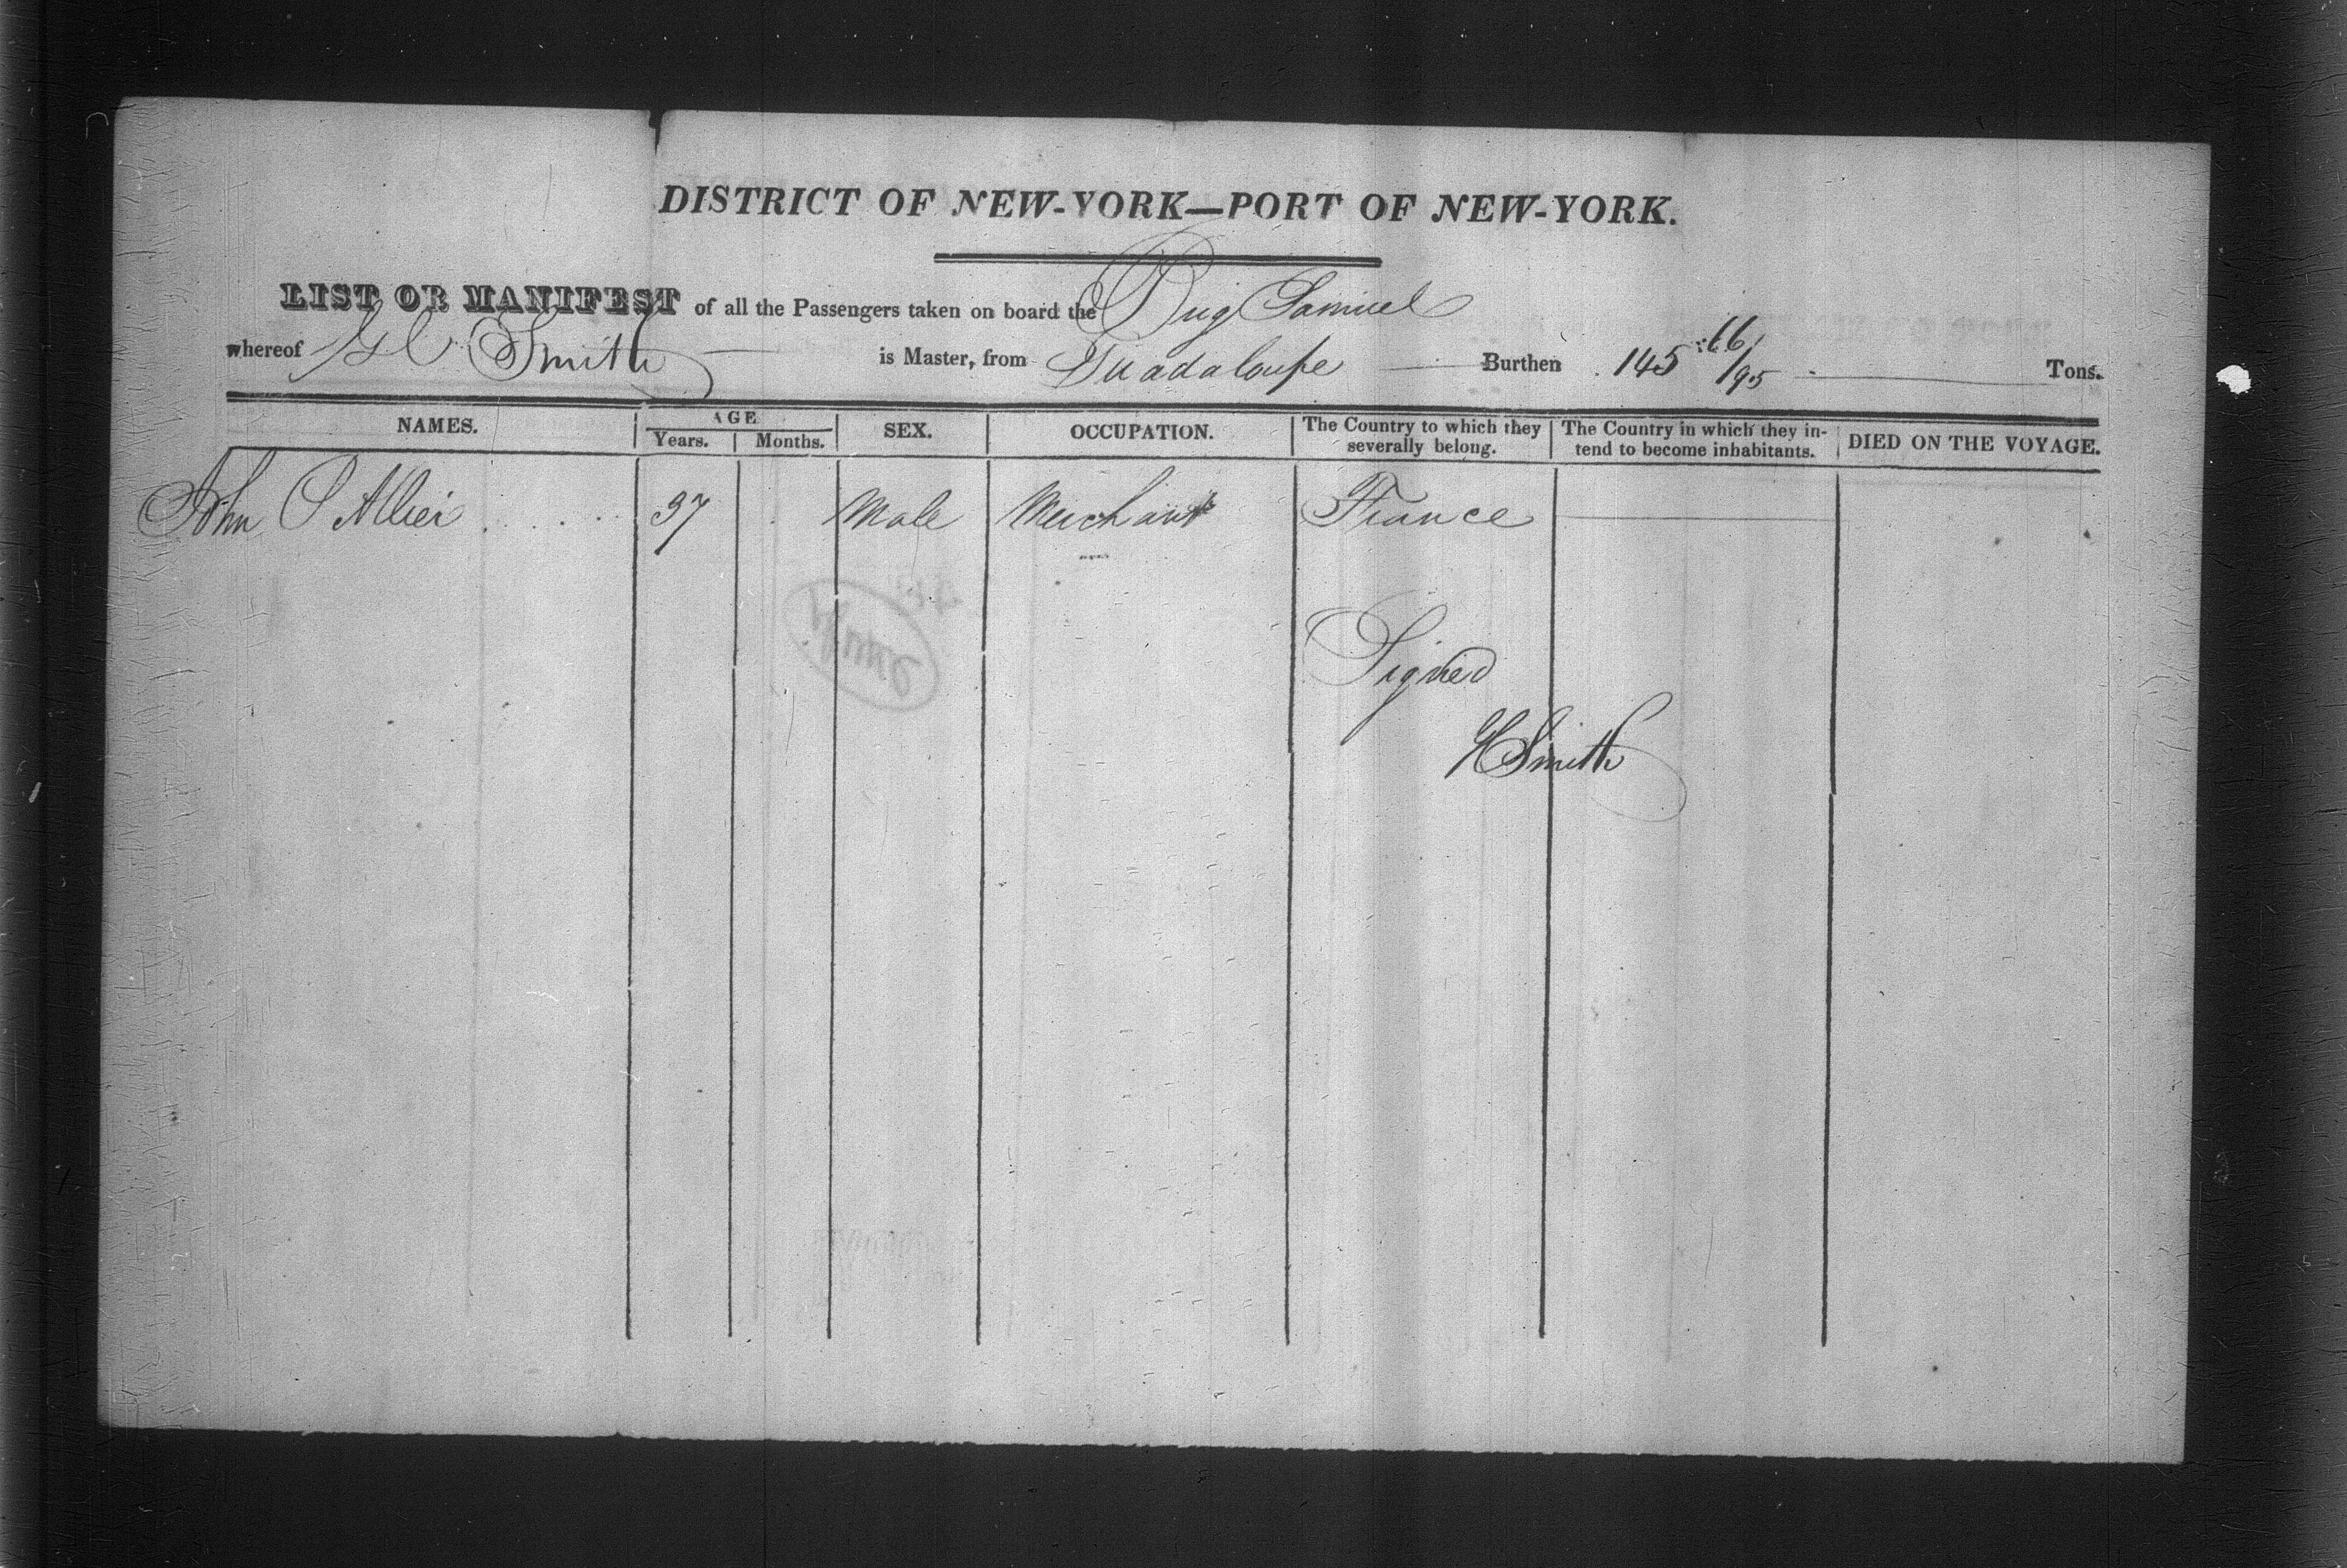 DISTRICT OF NEW-YORK—PORT OF NEW-YORK.
LIST OR MANIFEST of all the Passengers taken on board the Brig Samuel
whereof Smith is Master, from Guadaloupe Burthen 145 16/95 Tons.
NAMES. AGE Years. Months. SEX. OCCUPATION. The Country to which they severally belong. The Country in which they intend to become inhabitants. DIED ON THE VOYAGE.
John 37 Male Merchant France
Signed
Smith